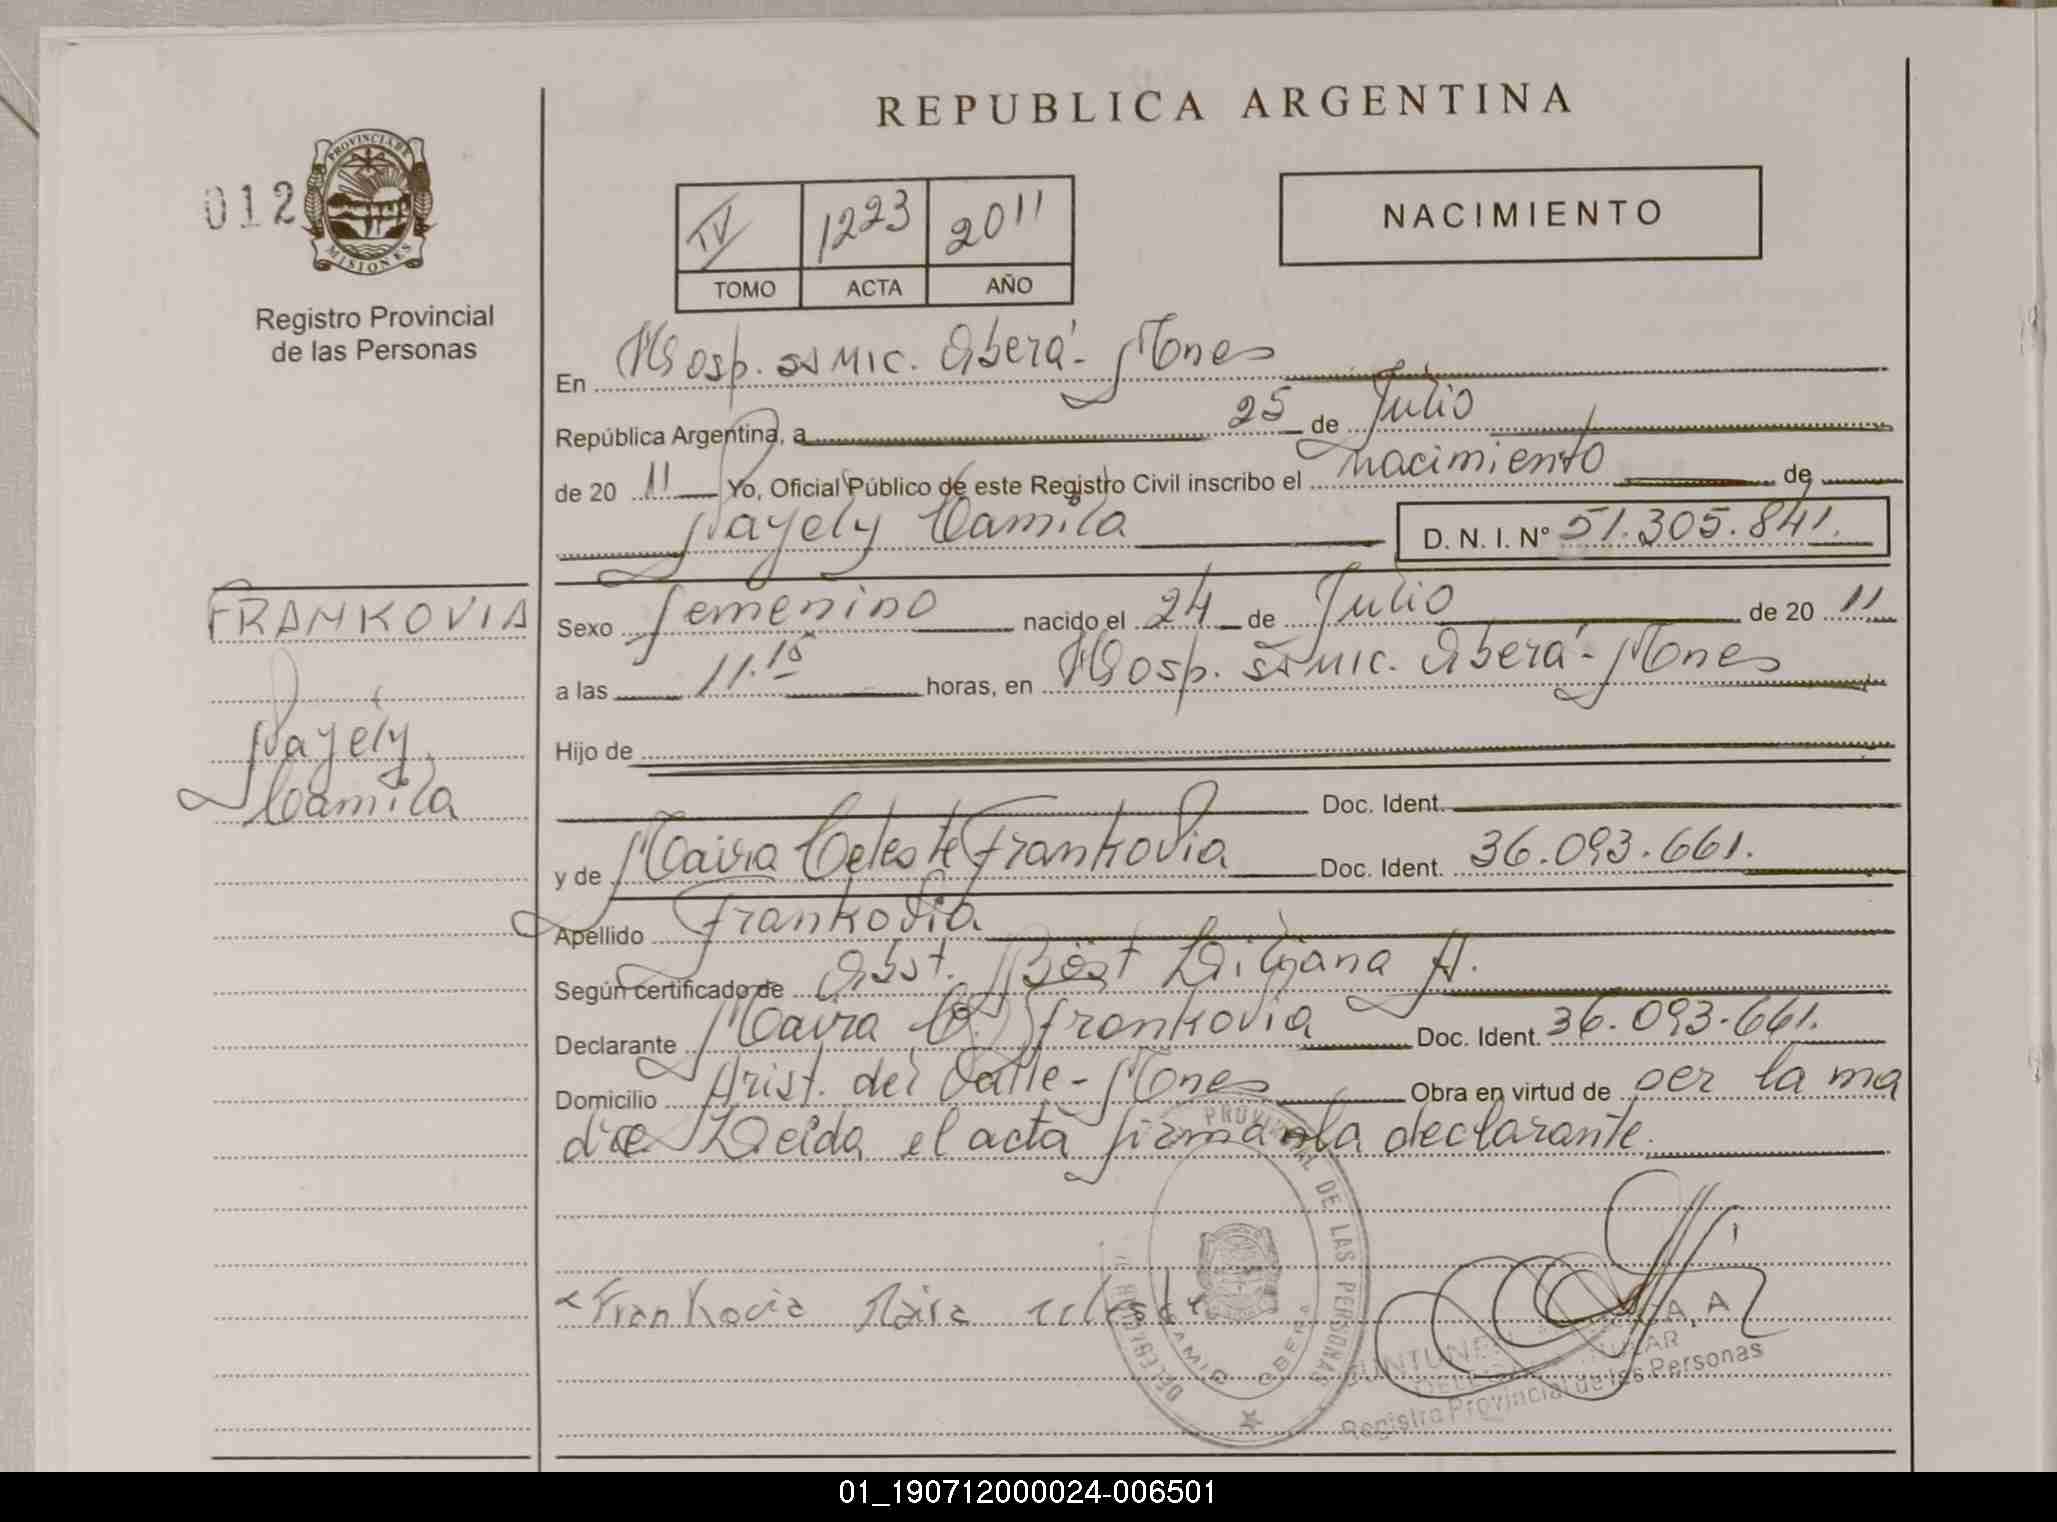 REPUBLICA ARGENTINA
012
PROVINCIA DE
MISIONES
Registro Provincial
de las Personas
IV 1223 2011
TOMO ACTA AÑO
NACIMIENTO
En Hosp. SAMIC. Oberá - Mnes
República Argentina, a 25 de Julio
de 20 11 Yo, Oficial Público de este Registro Civil inscribo el nacimiento de
Nayely Camila D. N. I. Nº 51.305.841.
FRANKOVIA
Nayely
Camila
Sexo femenino nacido el 24 de Julio de 20 11
a las 11.15 horas, en Hosp. SAMIC. Oberá - Mnes
Hijo de
Doc. Ident.
y de Maira Celeste Frankovia Doc. Ident. 36.093.661.
Apellido Frankovia
Según certificado de Obst. Böst Liliana A.
Declarante Maira C. Frankovia Doc. Ident. 36.093.661.
Domicilio Arist. del Valle - Mnes Obra en virtud de ser la ma
dre Leída el acta firma la declarante.
Frankovia Maira celeste
PROVINCIAL DE LAS PERSONAS
Registro Provincial de las Personas
01_190712000024-006501